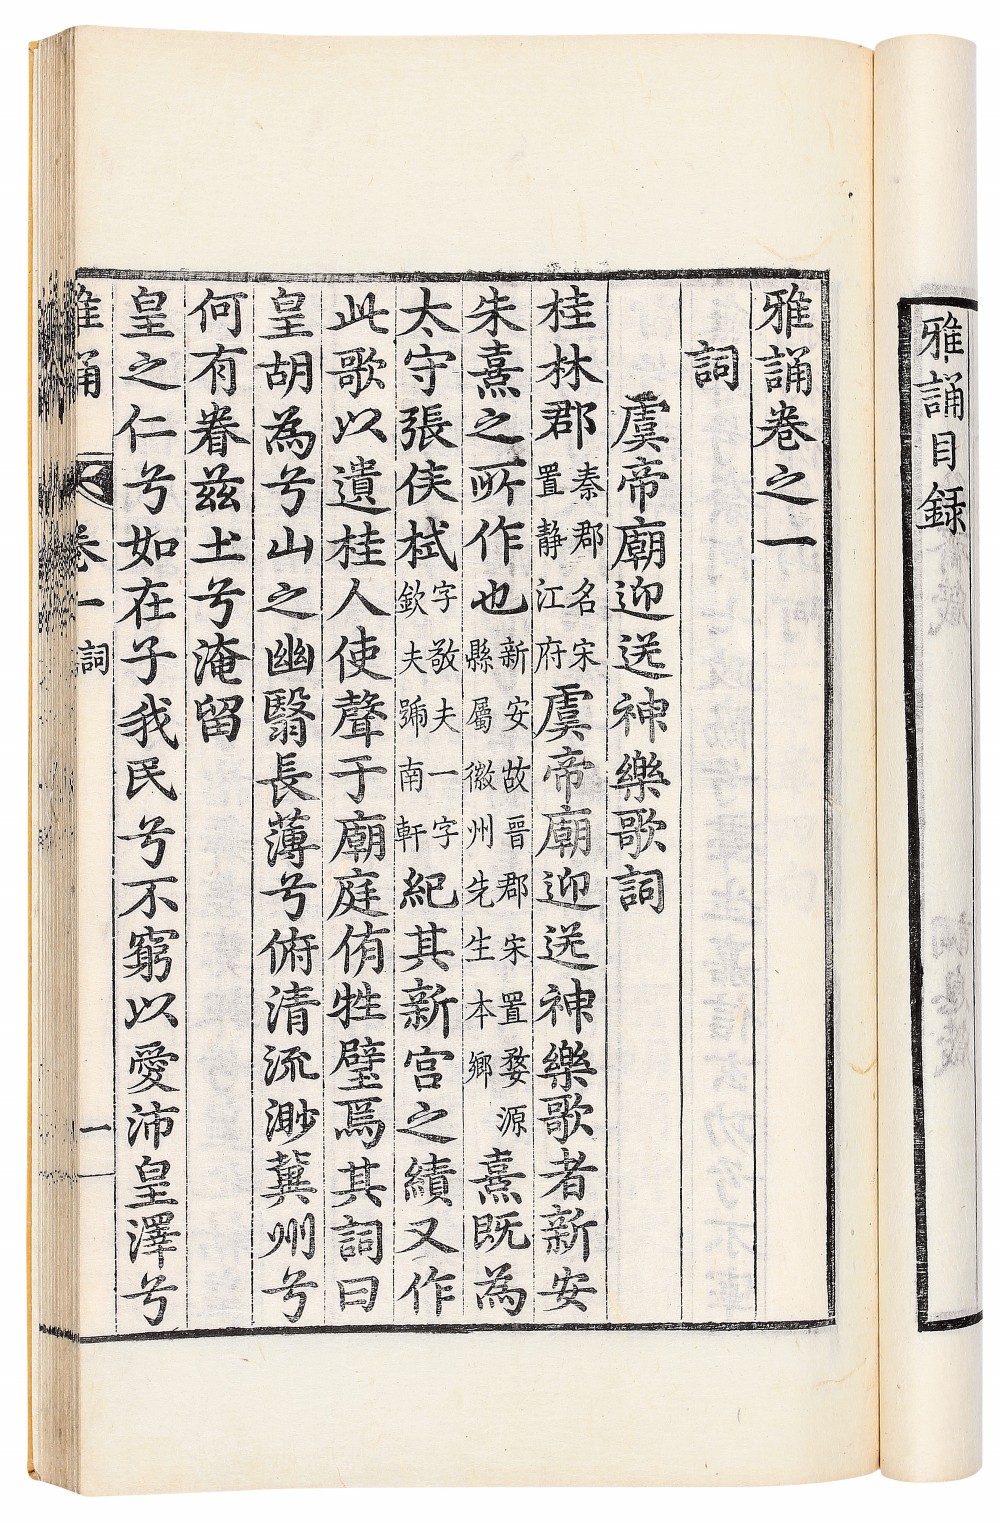 雅誦目録
雅誦卷之一
詞
虞帝廟迎送神樂歌詞
桂林郡秦郡名宋置靜江府虞帝廟迎送神樂歌者新安
朱熹之所作也新安故晉郡宋置婺源縣屬徽州先生本鄉熹旣為
太守張侯栻字敬夫一字欽夫號南軒紀其新宮之績又作
此歌以遺桂人使聲于廟庭侑牲璧焉其詞曰
皇胡為兮山之幽翳長薄兮俯清流渺冀州兮
何有眷兹土兮淹留
皇之仁兮如在子我民兮不窮以愛沛皇澤兮
雅誦 卷一 詞 一